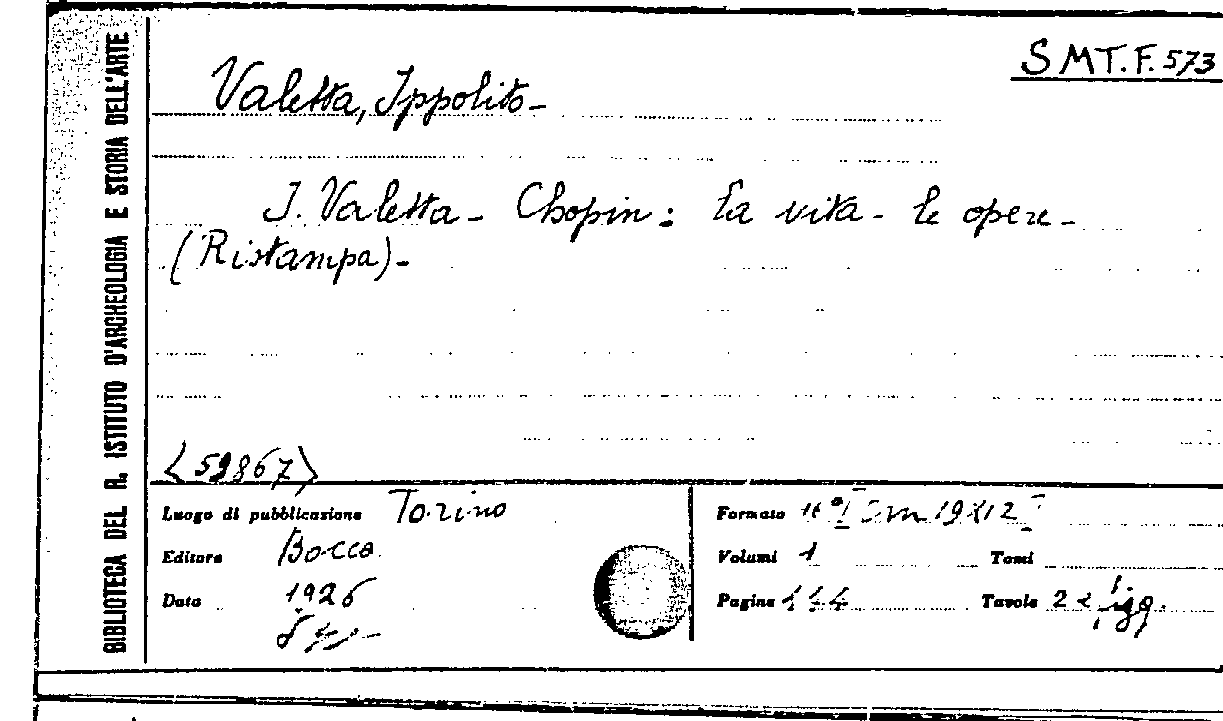 S MT. F. 573
Valetta, Ippolito -
I. Valetta - Chopin: la vita - le opere -
(Ristampa) -
<59867>
BIBLIOTECA DEL R. ISTITUTO D'ARCHEOLOGIA E STORIA DELL'ARTE
Luogo di pubblicazione Torino
Editore Bocca
Data 1926
Formato 16° [cm 19x12]
Volumi 1 Tomi
Pagine Tavole 2 figg.